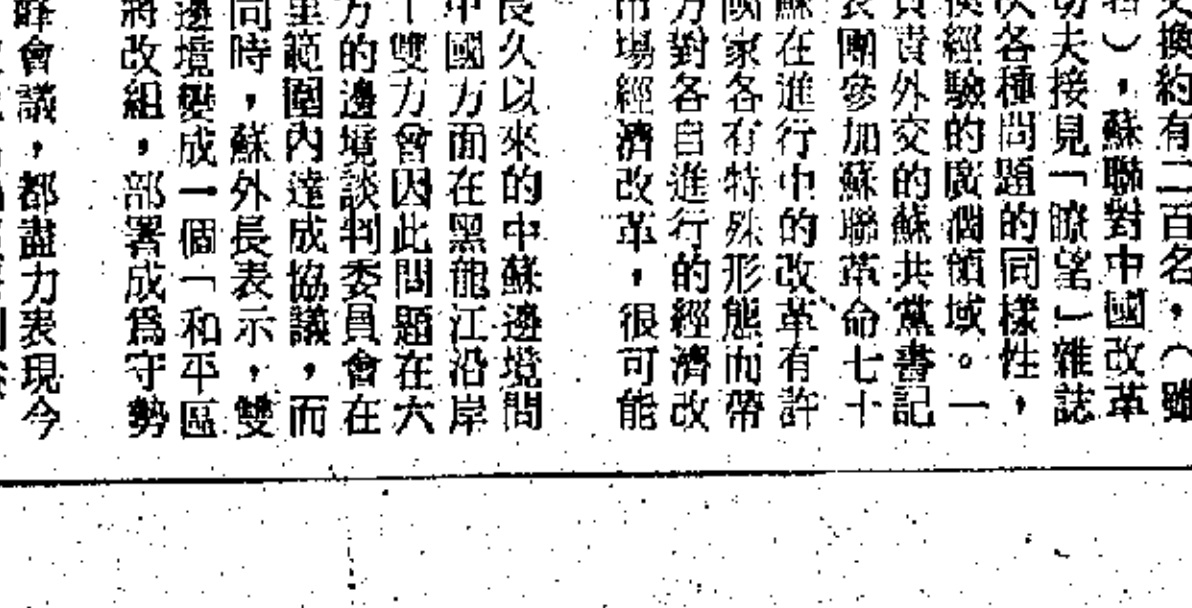 交換約有二百名，（雖
），蘇聯對中國改革
切夫接見「瞭望」雜誌
次各種問題的同樣性，
換經驗的廣濶領域。一
負責外交的蘇共黨書記
表團參加蘇聯革命七十
蘇在進行中的改革有許
國家各有特殊形態而帶
方對各自進行的經濟改
市場經濟改革，很可能
長久以來的中蘇邊境問
中國方面在黑龍江沿岸
雙方會因此問題在六
方的邊境談判委員會在
里範圍內達成協議，而
同時，蘇外長表示，雙
邊境變成一個「和平區
將改組，部署成爲守勢
峰會議，都盡力表現今